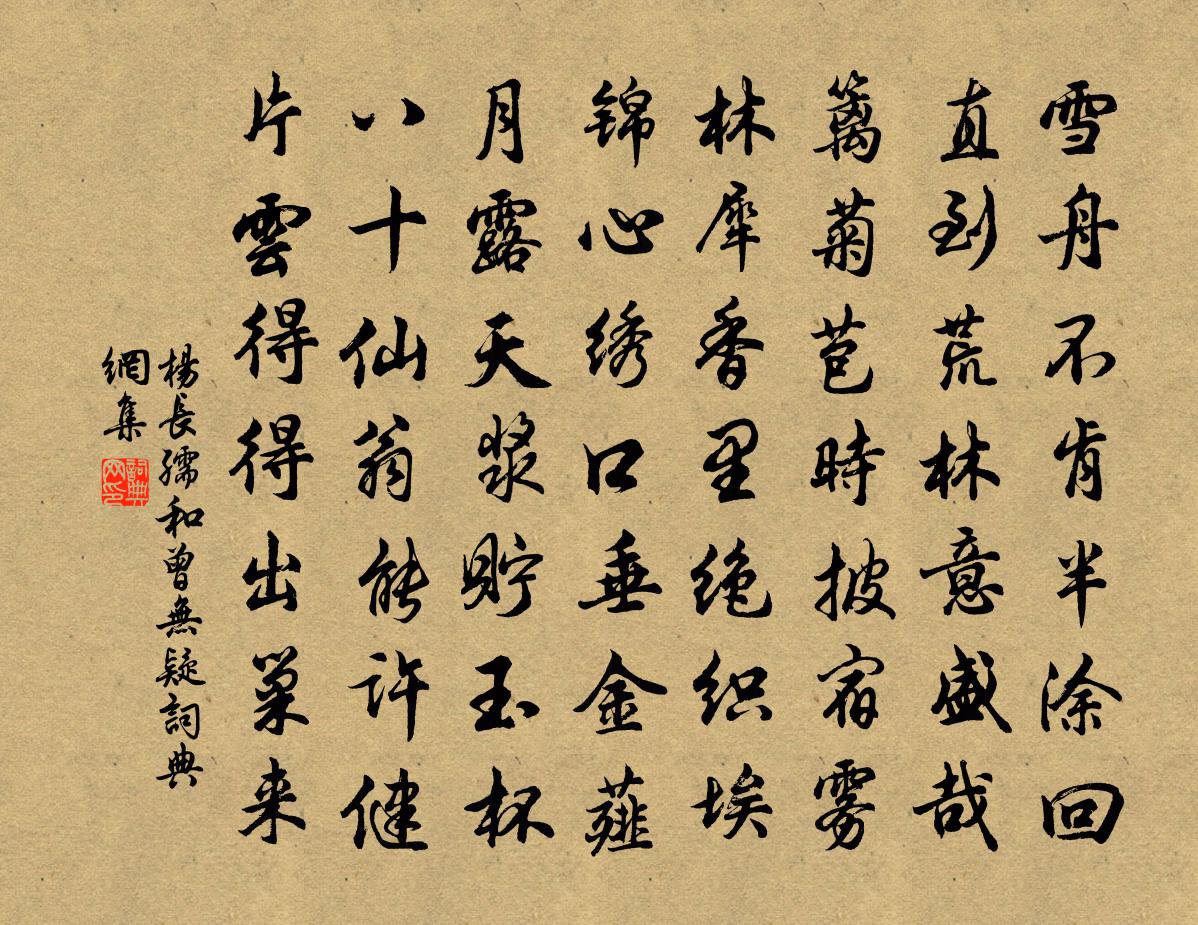 雪舟不肯半涂回
直到荒林意盛哉
篱菊苞時披宿雾
林犀香里绝织埃
锦心绣口垂金薤
月露天浆貯玉杯
八十仙翁能许健
片雲得得出巢来
楊長孺和曾無疑詞典
網集
詞典
网印